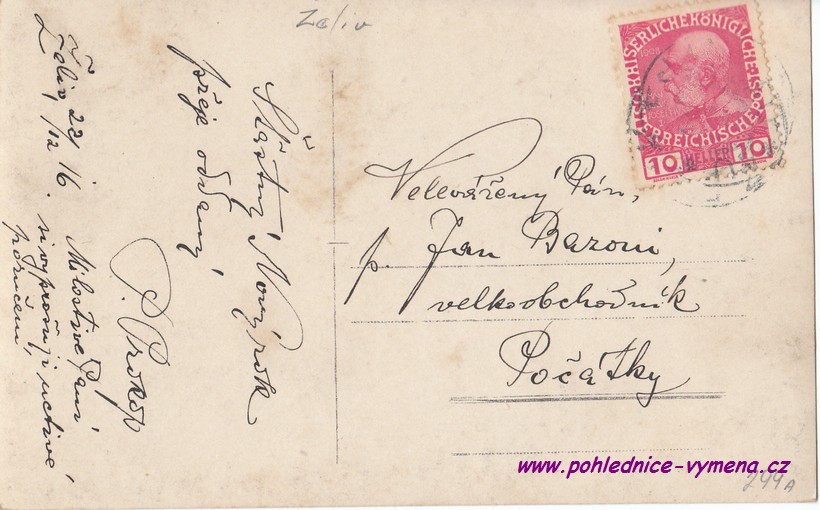 Želiv
Želiv 22/12 16.
Šťastný Nový rok
přeje oddaný
P. Prokop
Milostivé Paní
poručení,
Velevážený Pán,
p. Jan Baroni,
velkoobchodník
Počátky
KAISERLICHE KÖNIGLICHE
ÖSTERREICHISCHE POST
1908
10 HELLER 10
www.pohlednice-vymena.cz
244A